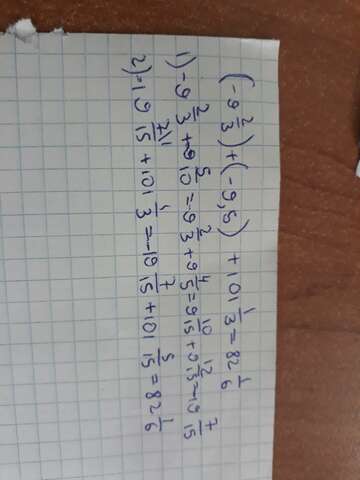 (-9 2/3)+(-9,5) +101 1/3=82 1/6
1)-9 2/3+9 5/10=-9 2/3+9 4/5=9 10/15+9 12/15=-19 7/15
2)-19 7/15+101 1/3=-19 7/15+101 5/15=82 1/6